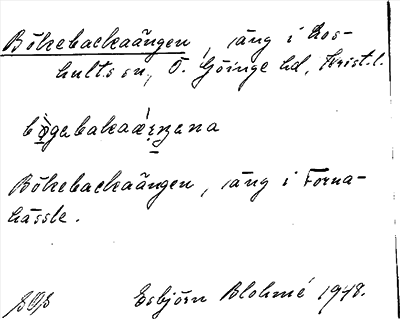 Bökebackaängen, äng i Los-
hults sn, Ö. Göinge hd, Krist. l.
Bökebackaängen, äng i Forna-
hässle.
Esbjörn Blohmé 1948.